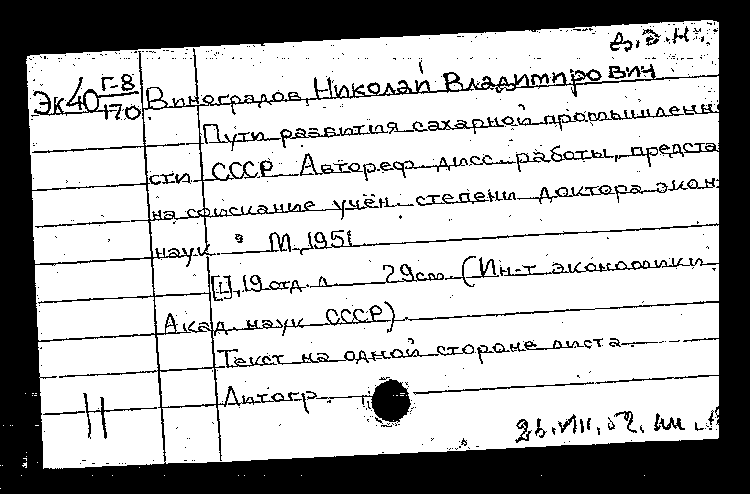 Д.Э.Н.
Эк40 Г-8/170 Виноградов, Николай Владимирович
Пути развития сахарной промышленно
сти СССР. Автореф. дисс. работы, предста
на соискание учён. степени доктора экон.
наук. М., 1951.
[1], 19 отд. л. 29см. (Ин-т экономики
Акад. наук СССР).
Текст на одной стороне листа.
Литогр.
11
26.VII.52.